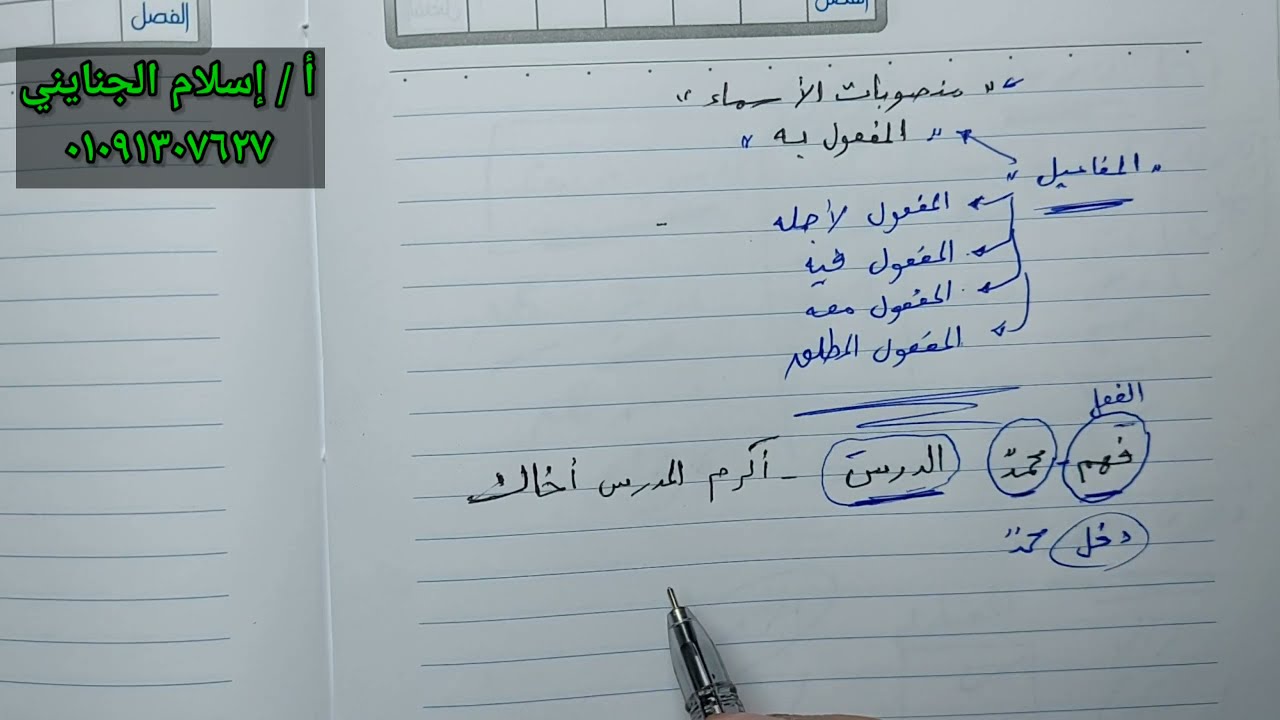 الفصل
الفصل
أ / إسلام الجنايني
٠١٠٩١٣٠٧٦٢٧
" منصوبات الأسماء "
" المفعول به "
" المفاعيل "
المفعول لأجله
المفعول فيه
المفعول معه
المفعول المطلق
الفعل
فَهم محمدٌ الدرسَ - أكرم المدرس أخاك
دخل محمدٌ